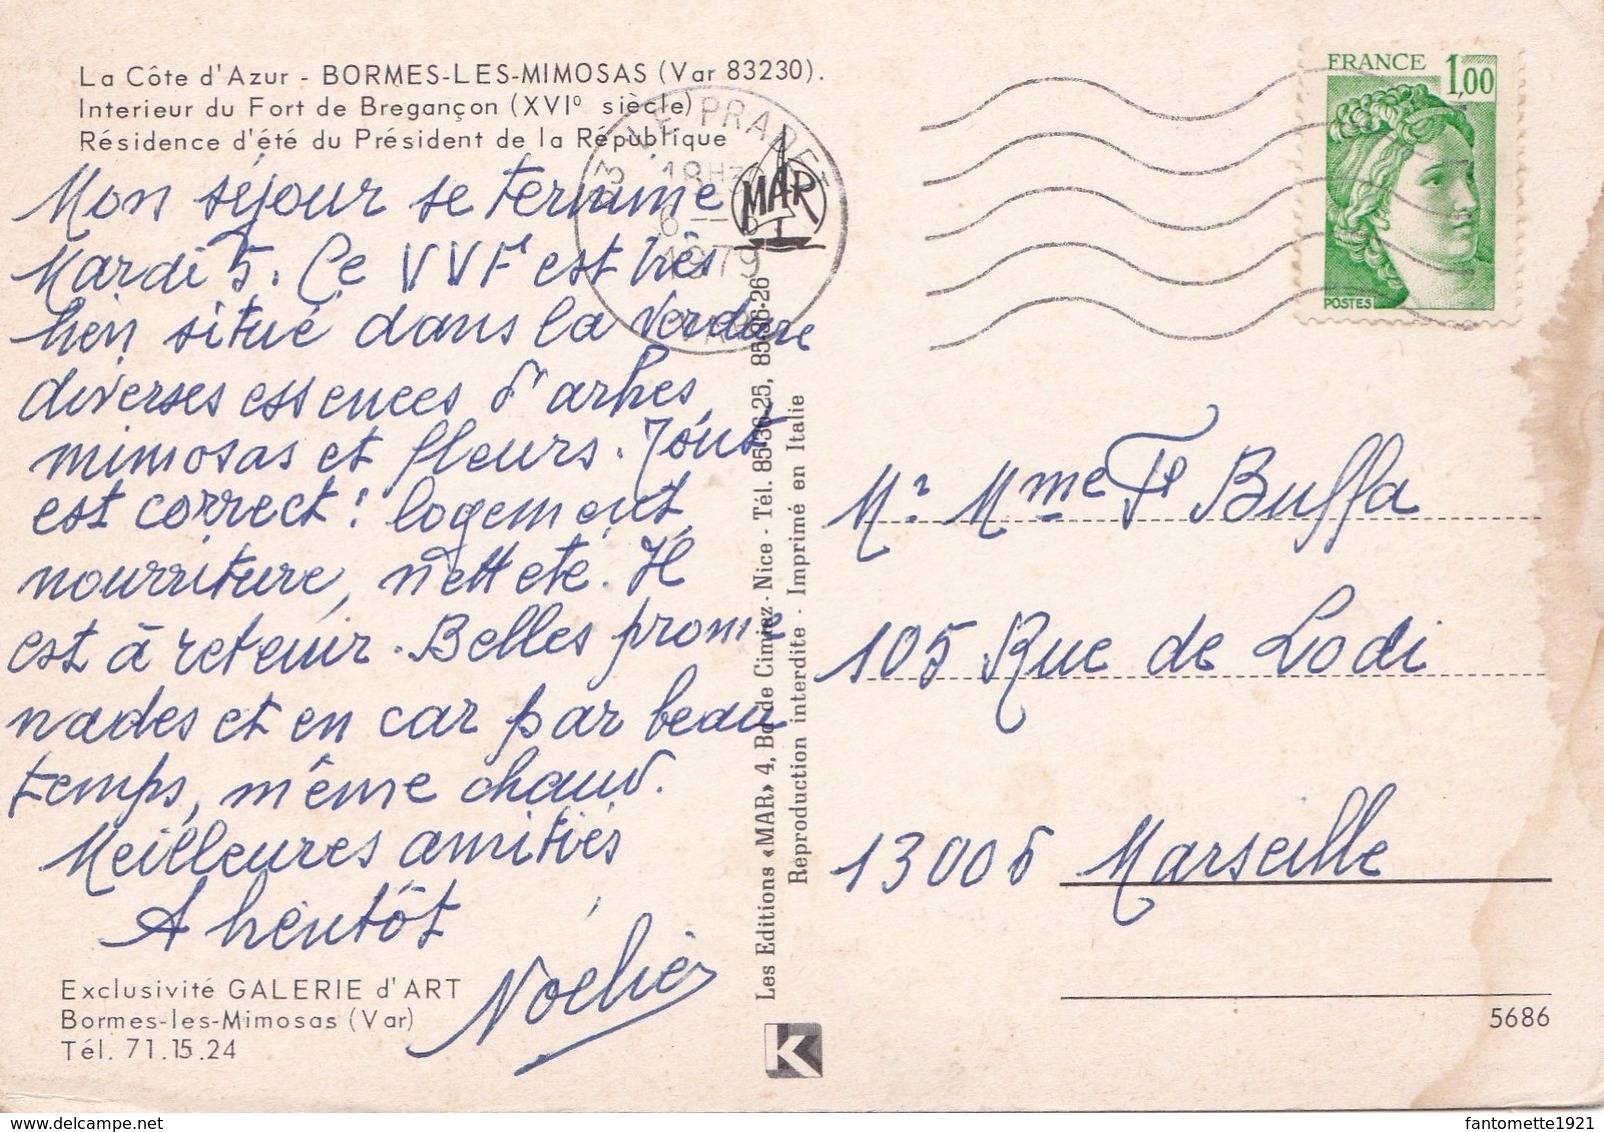 La Côte d'Azur - BORMES-LES-MIMOSAS (Var 83230).
Interieur du Fort de Bregançon (XVIº siècle)
Résidence d'été du Président de la République
Mon séjour se termine
Mardi 5. Ce VVF est très
bien situé dans la verdure
diverses essences d'arbres,
mimosas et fleurs. Tout
est correct : logement,
nourriture, netteté. Il
est à retenir. Belles prome
nades et en car par beau
temps, même chaud.
Meilleures amitiés
A bientôt
Exclusivité GALERIE d'ART
Bormes-les-Mimosas (Var)
Tél. 71.15.24
LE PRADET
18H
6
1979
VAR
MAR
Les Editions «MAR» 4, Bd de Cimiez - Nice - Tél. 85-36-25, 85-36-26
Reproduction interdite - Imprimé en Italie
K
FRANCE 1,00
POSTES
Mr Mme Buffa
105 Rue de Lodi
Marseille
5686
fantomette1921